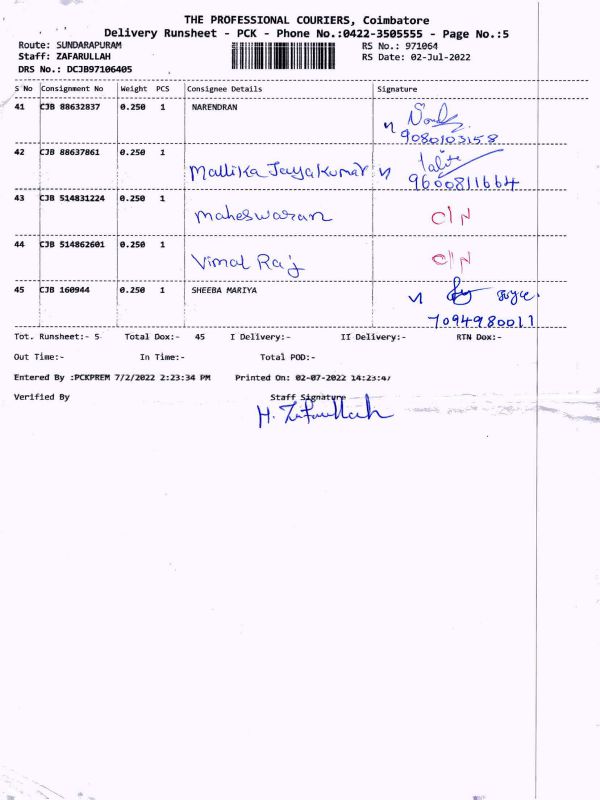 THE PROFESSIONAL COURIERS, Coimbatore
Delivery Runsheet - PCK - Phone No.:0422-3505555 - Page No.:5
Route: SUNDARAPURAM RS No.: 971064
Staff: ZAFARULLAH RS Date: 02-Jul-2022
DRS No.: DCJB97106405
S No Consignment No Weight PCS Consignee Details Signature
41 CJB 88632837 0.250 1 NARENDRAN
9080103158
42 CJB 88637861 0.250 1
Mallika Jayakumar
9600811664
43 CJB 514831224 0.250 1
Maheswaran C/N
44 CJB 514862601 0.250 1
Vimal Raj C/N
45 CJB 160944 0.250 1 SHEEBA MARIYA
7094980011
Tot. Runsheet:- 5 Total Dox:- 45 I Delivery:- II Delivery:- RTN Dox:-
Out Time:- In Time:- Total POD:-
Entered By :PCKPREM 7/2/2022 2:23:34 PM Printed On: 02-07-2022 14:23:47
Verified By Staff Signature
H. Zafaullah